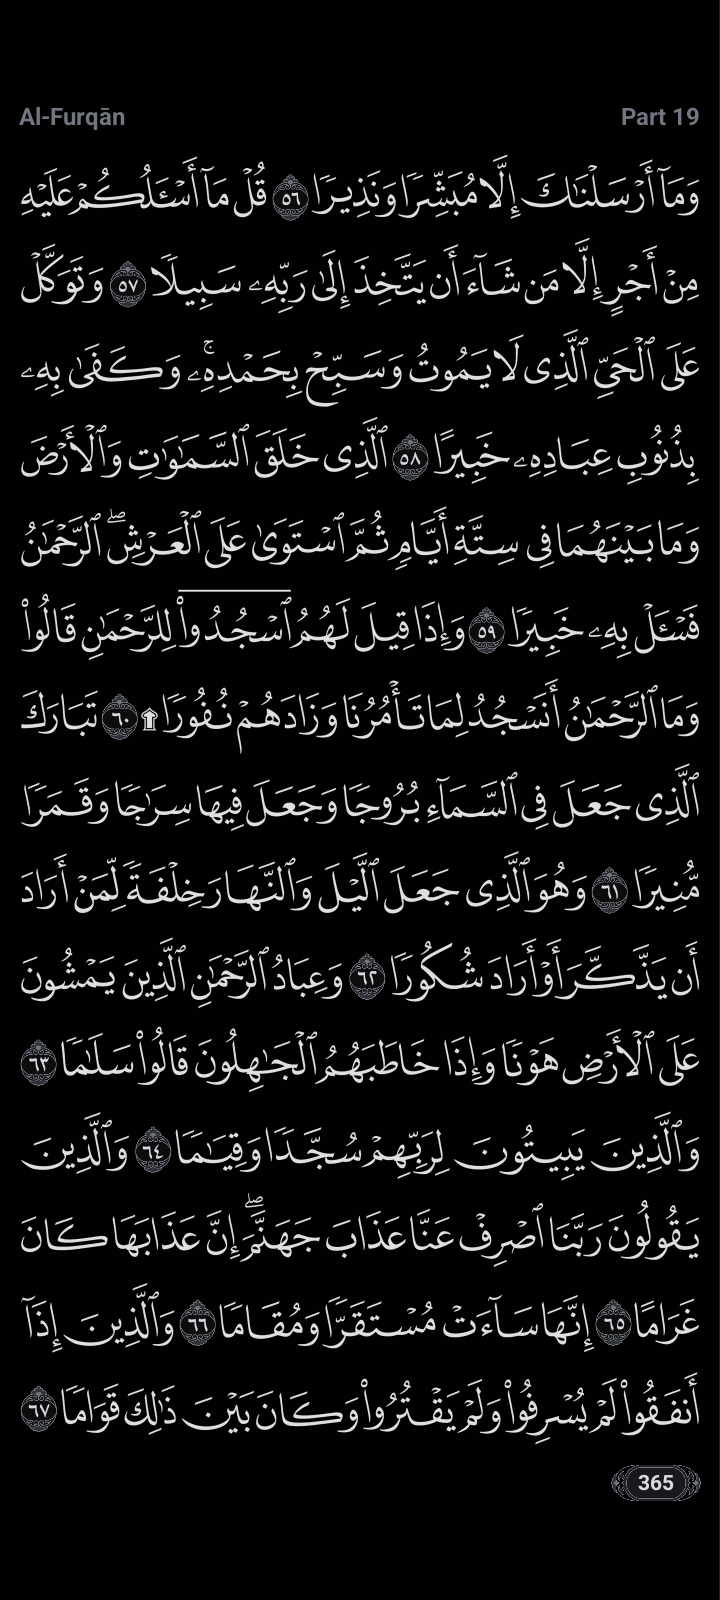 Al-Furqān
Part 19
وَمَآ أَرۡسَلۡنَٰكَ إِلَّا مُبَشِّرٗا وَنَذِيرٗا ٥٦ قُلۡ مَآ أَسۡـَٔلُكُمۡ عَلَيۡهِ
مِنۡ أَجۡرٍ إِلَّا مَن شَآءَ أَن يَتَّخِذَ إِلَىٰ رَبِّهِۦ سَبِيلٗا ٥٧ وَتَوَكَّلۡ
عَلَى ٱلۡحَيِّ ٱلَّذِي لَا يَمُوتُ وَسَبِّحۡ بِحَمۡدِهِۦۚ وَكَفَىٰ بِهِۦ
بِذُنُوبِ عِبَادِهِۦ خَبِيرًا ٥٨ ٱلَّذِي خَلَقَ ٱلسَّمَٰوَٰتِ وَٱلۡأَرۡضَ
وَمَا بَيۡنَهُمَا فِي سِتَّةِ أَيَّامٖ ثُمَّ ٱسۡتَوَىٰ عَلَى ٱلۡعَرۡشِۖ ٱلرَّحۡمَٰنُ
فَسۡـَٔلۡ بِهِۦ خَبِيرٗا ٥٩ وَإِذَا قِيلَ لَهُمُ ٱسۡجُدُواْۤ لِلرَّحۡمَٰنِ قَالُواْ
وَمَا ٱلرَّحۡمَٰنُ أَنَسۡجُدُ لِمَا تَأۡمُرُنَا وَزَادَهُمۡ نُفُورٗا ۩ ٦٠ تَبَارَكَ
ٱلَّذِي جَعَلَ فِي ٱلسَّمَآءِ بُرُوجٗا وَجَعَلَ فِيهَا سِرَٰجٗا وَقَمَرٗا
مُّنِيرٗا ٦١ وَهُوَ ٱلَّذِي جَعَلَ ٱلَّيۡلَ وَٱلنَّهَارَ خِلۡفَةٗ لِّمَنۡ أَرَادَ
أَن يَذَّكَّرَ أَوۡ أَرَادَ شُكُورٗا ٦٢ وَعِبَادُ ٱلرَّحۡمَٰنِ ٱلَّذِينَ يَمۡشُونَ
عَلَى ٱلۡأَرۡضِ هَوۡنٗا وَإِذَا خَاطَبَهُمُ ٱلۡجَٰهِلُونَ قَالُواْ سَلَٰمٗا ٦٣
وَٱلَّذِينَ يَبِيتُونَ لِرَبِّهِمۡ سُجَّدٗا وَقِيَٰمٗا ٦٤ وَٱلَّذِينَ
يَقُولُونَ رَبَّنَا ٱصۡرِفۡ عَنَّا عَذَابَ جَهَنَّمَۖ إِنَّ عَذَابَهَا كَانَ
غَرَامًا ٦٥ إِنَّهَا سَآءَتۡ مُسۡتَقَرّٗا وَمُقَامٗا ٦٦ وَٱلَّذِينَ إِذَآ
أَنفَقُواْ لَمۡ يُسۡرِفُواْ وَلَمۡ يَقۡتُرُواْ وَكَانَ بَيۡنَ ذَٰلِكَ قَوَامٗا ٦٧
365